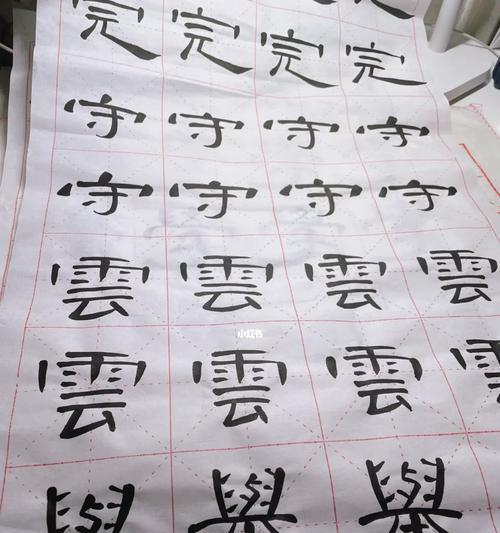 完完完完
守守守守
守守守守
雲雲雲雲
小红书
雲雲雲雲
舉舉舉